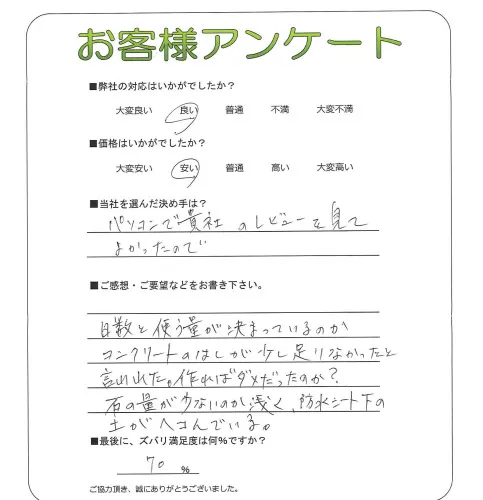 お客様アンケート
■弊社の対応はいかがでしたか？
大変良い 良い 普通 不満 大変不満
■価格はいかがでしたか？
大変安い 安い 普通 高い 大変高い
■当社を選んだ決め手は？
パソコンで貴社のレビューを見て
よかったので
■ご感想・ご要望などをお書き下さい。
日数と使う量が決まっているのか
コンクリートのはしが少し足りなかったと
言い出した。作ればダメだったのか？
石の量が少ないのか浅く、防水シート下の
土がヘコんでいる。
■最後に、ズバリ満足度は何％ですか？
70 %
ご協力頂き、誠にありがとうございました。